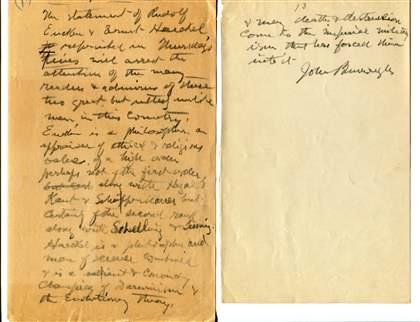 The statement of Rudolf
Eucken & Ernst Haeckel
reproduced in Thursday's
Times will arrest the
attention of the many
readers & admirers of these
two great but utterly unlike
men in this Country.
Eucken is a philosopher, an
appraiser of ethical & religious
values, of a high order
perhaps not of the first order
along with Hegel &
Kant & Schopenhauer but
certainly of the second rank
along with Schelling &
Haeckel is a philosopher and
man of science combined
& is a radical & convincing
Champion of Darwinism &
the Evolutionary theory.
13
& may death & destruction
come to the imperial military
ism that has forced them
into it.
John Burroughs